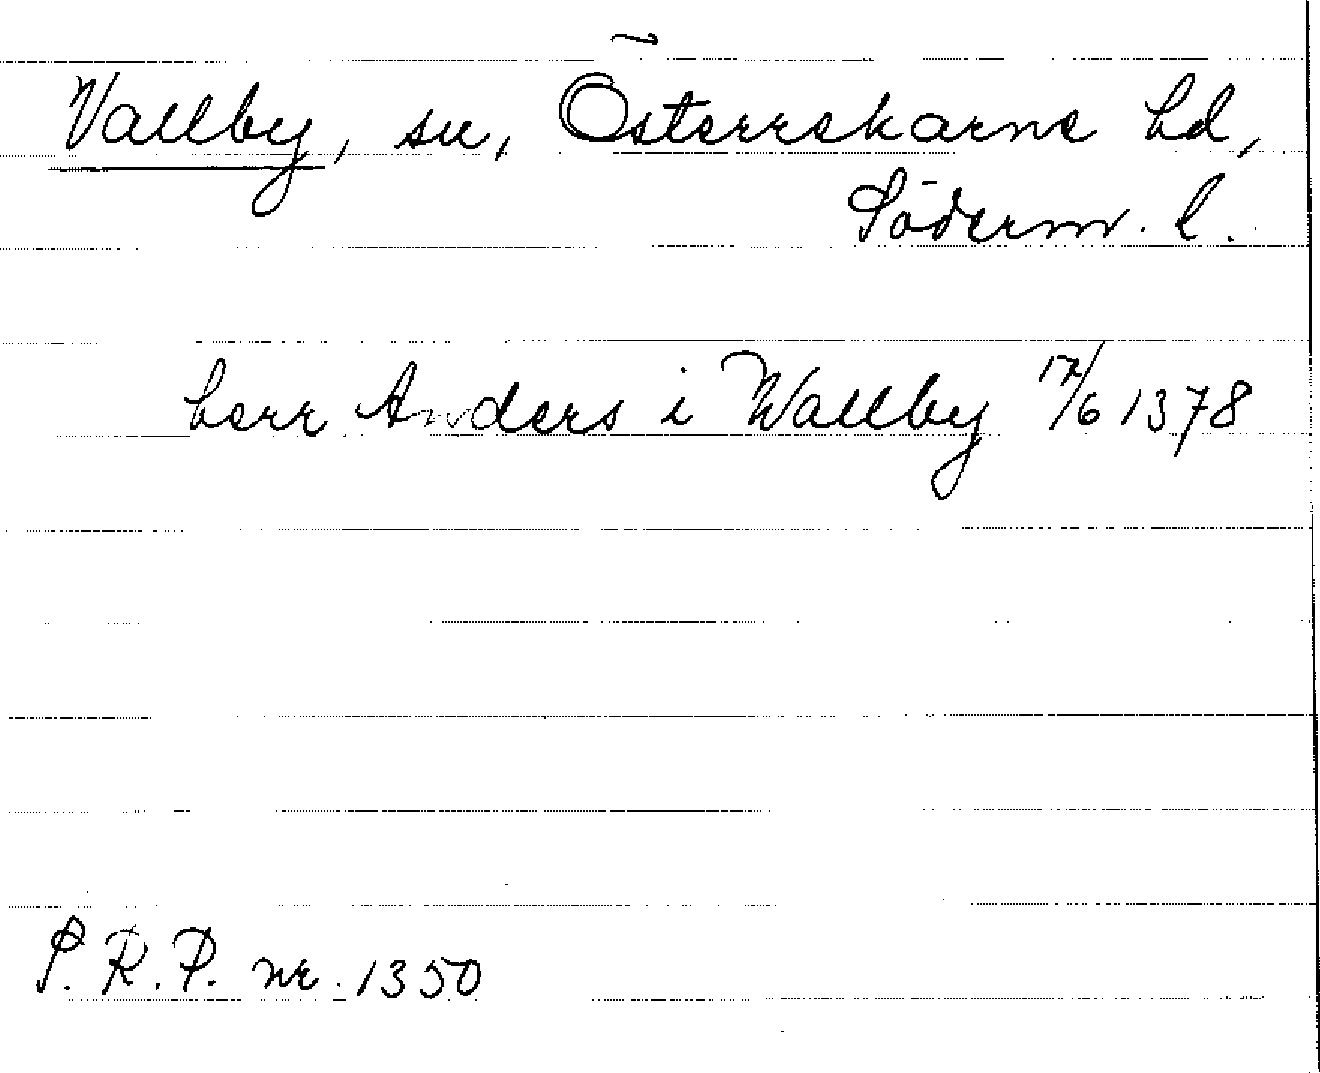 Vallby, sn, Österrekarne hd,
Söderm. l.
herr Anders i Wallby 17/6 1378
S.R.P. nr. 1350